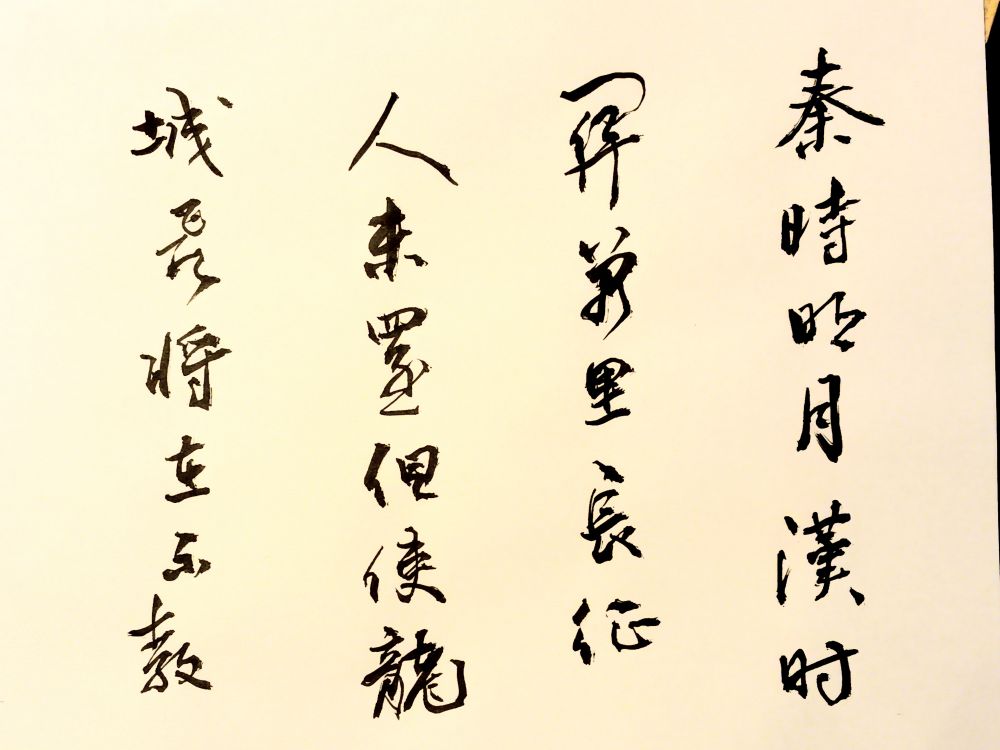 秦時明月漢时
関萬里長征
人未還但使龍
城飛將在不教